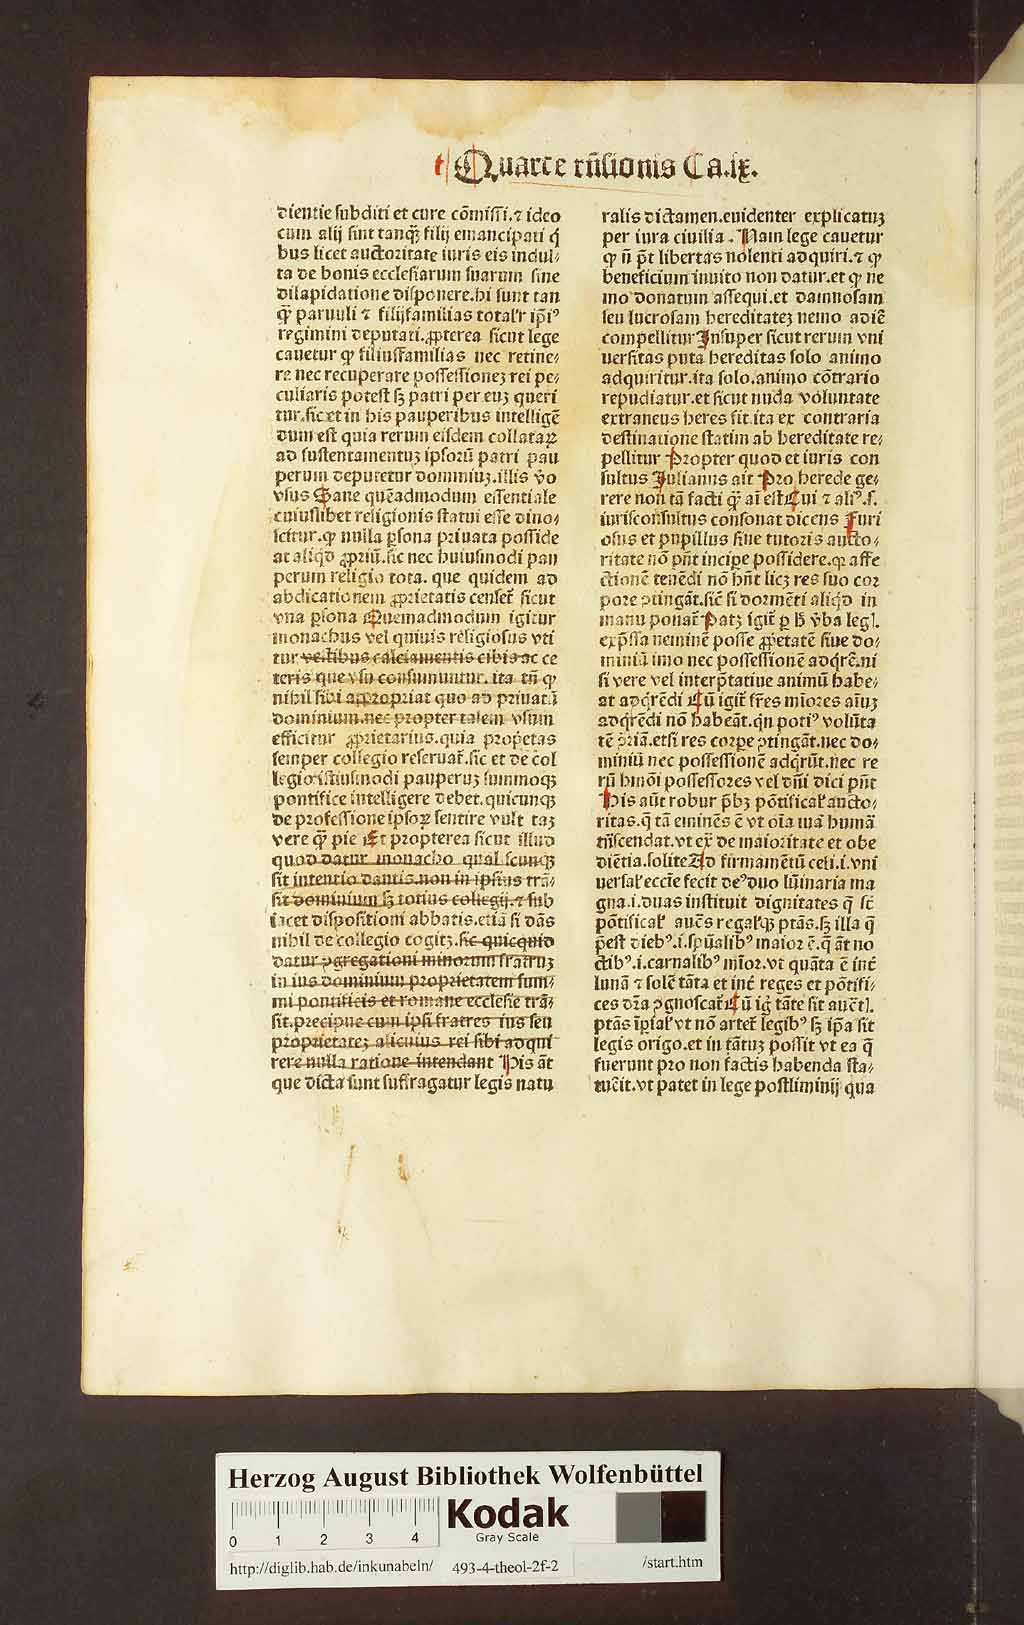 t Quarte rñsionis Ca.ix.
dientie subditi et cure cõmissi.⁊ ideo
cum alij sint tanqꝫ filij emancipati q̇
bus licet auctoritate iuris eis indul⸗
ta de bonis ecclesiarum suarum sine
dilapidatione disponere.hi sunt tan
q̃ꝫ paruuli ⁊ filijfamilias totalr̃ ip̃iꝰ
regimini deputati.ꝓpterea sicut lege
cauetur ꝙ filiusfamilias nec retine⸗
re nec recuperare possessionez rei pe⸗
culiaris potest sꝫ patri per euꝫ queri
tur.sic et in his pauperibus intelligẽ
dum est quia rerum eisdem collataꝝ
ad sustentamentuꝫ ipsorũ patri pau
perum deputetur dominiuꝫ.illis v̓o
vsus Sane quẽadmodum essentiale
cuiuslibet religionis statui esse dino⸗
scitur.ꝙ nulla ꝑsona priuata posside
at aliq̇d ꝓpriũ.sic nec huiusmodi pau
perum religio tota. que quidem ad
abdicationem ꝓprietatis censet̃ sicut
vna ꝑsona Quemadmodum igitur
monachus vel quiuis religiosus vti
tur vestibus calciamentis cibis ac ce
teris que vsu consumuntur. ita tñ ꝙ
nihil sibi appropriat quo ad priuatũ
dominium.nec propter talem vsum
efficitur ꝓprietarius.quia proprietas
semper collegio reseruat̃.sic et de col
legio istiusmodi pauperuꝫ summoqꝫ
pontifice intelligere debet.quicunqꝫ
de professione ipsoꝝ sentire vult taꝫ
vere q̃ꝫ pie Et propterea sicut illud
quod datur monacho qualiscunqꝫ
sit intentio dantis.non in ipsius trã⸗
sit dominium sꝫ totius collegij.⁊ sub
iacet dispositioni abbatis.etiã si dãs
nihil de collegio cogitꝫ.sic quicquid
datur ꝯgregationi minorum fratruꝫ
in ius dominium proprietatem sum⸗
mi pontificis et romane ecclesie trã⸗
sit.precipue cum ipsi fratres ius seu
proprietateꝫ alicuius rei sibi adqui
rere nulla ratione intendant His añt
que dicta sunt suffragatur legis natu
ralis dictamen.euidenter explicatuꝫ
per iura ciuilia. Nam lege cauetur
ꝙ ñ p̃t libertas nolenti adquiri.⁊ ꝙ
beneficium inuito non datur.et ꝙ ne
mo donatum assequi.et damnosam
seu lucrosam hereditateꝫ nemo adiẽ
compellitur Insuper sicut rerum vni
uersitas puta hereditas solo animo
adquiritur.ita solo.animo cõtrario
repudiatur.et sicut nuda voluntate
extraneus heres sit.ita ex contraria
destinatione statim ab hereditate re⸗
pellitur Propter quod et iuris con
sultus Iulianus ait Pro herede ge⸗
rere non tã facti q̃ꝫ aĩ est Cui ⁊ aliꝰ.s.
iurisconsultus consonat dicens Furi
osus et pupillus sine tutoris aucto⸗
ritate nõ pñt incipe possidere.qꝛ affe
ctionẽ tenẽdi nõ hñt licꝫ res suo cor
pore ꝯtingãt.sic̃ si dormẽti aliq̇d in
manu ponat̃ Patꝫ igit̃ ꝑ h̃ v̓ba legl.
exp̃ssa neminẽ posse ꝓp̃etatẽ siue do⸗
miniũ imo nec possessionẽ adq̃rẽ.ni
si vere vel interp̃tatiue animũ habe⸗
at adq̃rẽdi Cũ igit̃ fr̃es mĩores aĩuꝫ
adq̃rẽdi nõ habeãt.qñ potiꝰ volũta
tẽ ꝯriã.etsi res corꝑe ꝯtingãt.nec do⸗
miniũ nec possessionẽ adq̃rũt.nec re
rũ hmõi possessores vel dñi dici pñt
His aũt robur p̃bꝫ põtifical̃ aucto⸗
ritas.q̃ tã eminẽs ẽ vt oĩa iura humã
trãscendat.vt exͭ de maioritate et obe
diẽtia.solite Ad firmamẽtũ celi.i.vni
uersal̃ eccl̃e fecit deꝰ duo lũinaria ma
gna.i.duas instituit dignitates q̃ st̃
põtifical̃ auc̃s regal̃qꝫ ptãs.sꝫ illa q̃
p̃est diebꝰ.i.sp̃ualibꝰ maior ẽ.q̃ añt no
ctibꝰ.i.carnalibꝰ mĩor.vt quãta ẽ int̃
lunã ⁊ solẽ tãta et int̃ reges et põtifi⸗
ces dr̃a ꝯgnoscat̃ Cũ ig̃ tãte sit auc̃tl.
ptãs ĩpial̃ vt nõ artet̃ legibꝰ sꝫ ip̃a sit
legis origo.et in tãtuꝫ possit vt ea q̃
fuerunt pro non factis habenda sta⸗
tuẽit.vt patet in lege postliminij qua
Herzog August Bibliothek Wolfenbüttel
0 1 2 3 4
Kodak
Gray Scale
http://diglib.hab.de/inkunabeln/ 493-4-theol-2f-2 /start.htm